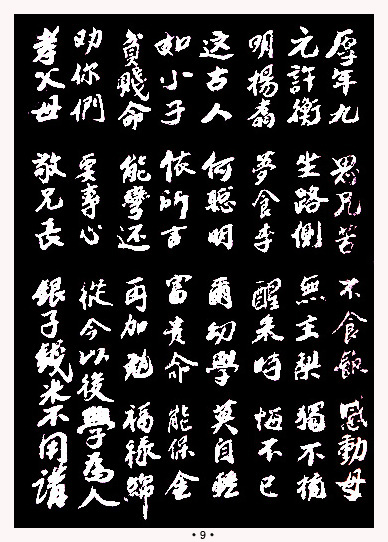 年九 兄苦 不食飯 感動母
元許衡 坐路側 無主梨 獨不摘
明楊翥 夢食李 醒來時 悔不已
这古人 何聰明 爾幼學 莫自輕
如小子 依所言 富貴命 能保全
貧賤命 能學還 再加勉 福祿綿
劝你們 要事心 從今以後學為人
孝父母 敬兄長 銀子錢米不用講
• 9 •